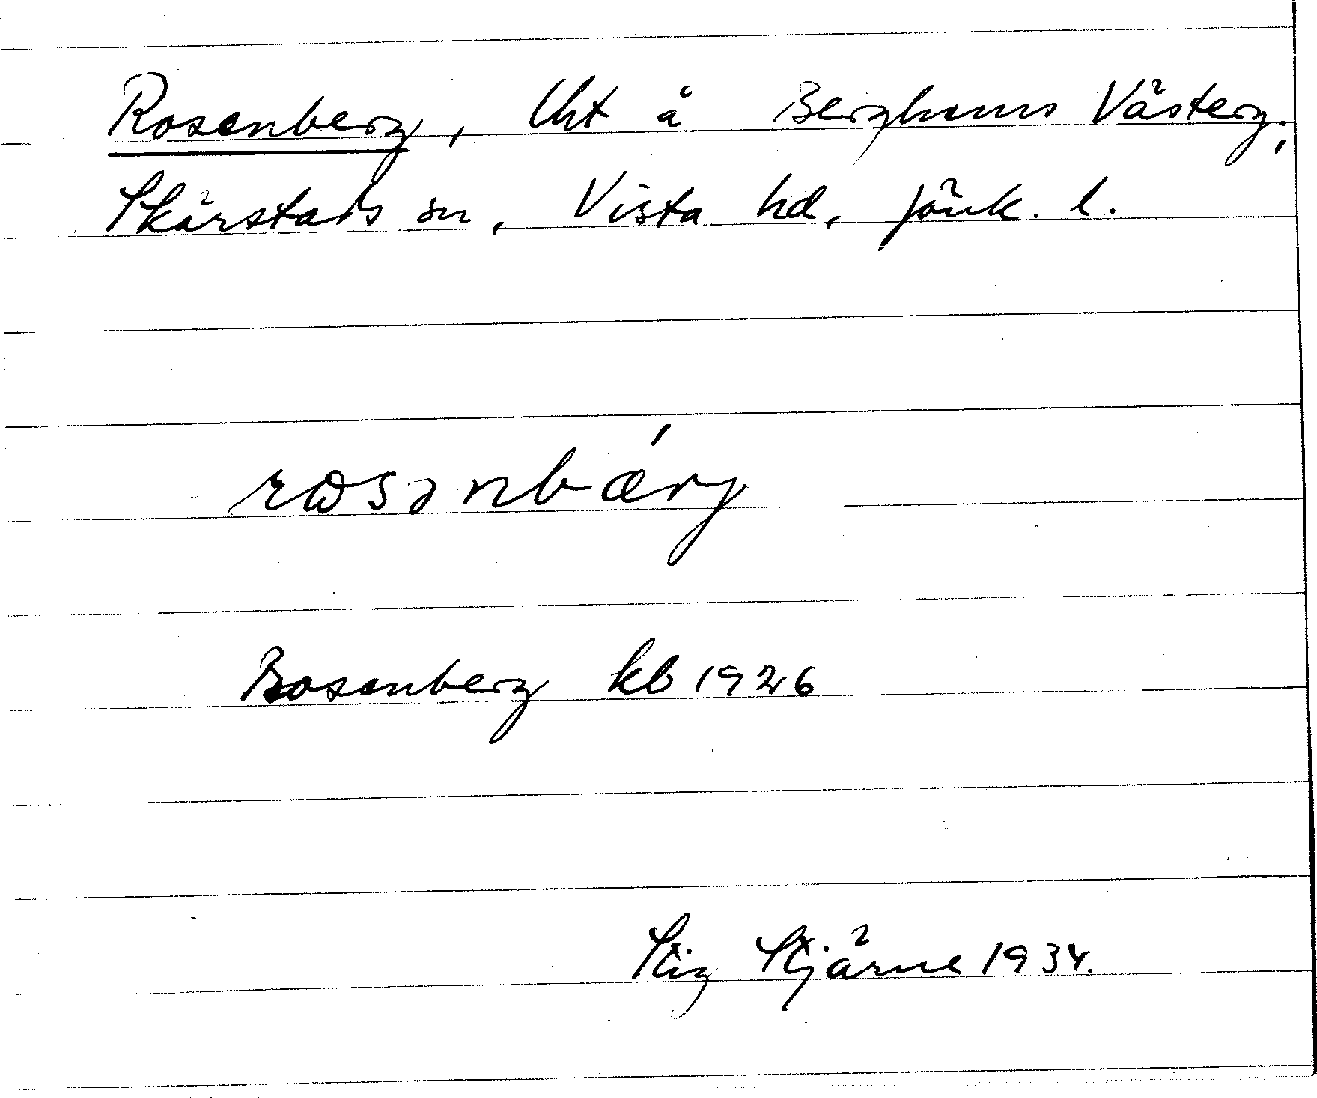 Rosenberg, lht å Berghems Västerg.,
Skärstads sn, Vista hd, Jönk. l.
rɷsənbærj
Rosenberg kb 1926
Stig Stjärne 1934.